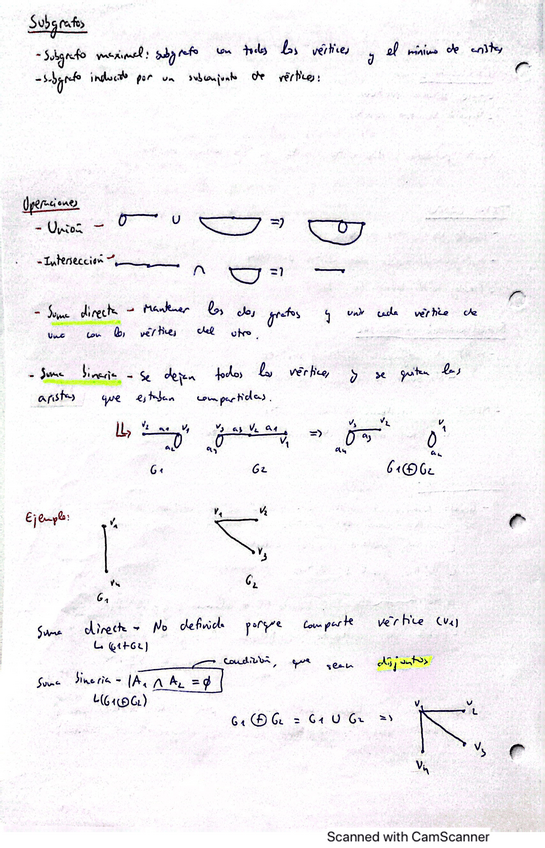 Subgrafos
- Subgrafo maximal: subgrafo con todos los vértices y el mínimo de aristas
- Subgrafo inducido por un subconjunto de vértices:
Operaciones
- Unión - ∪ =>
- Intersección - ∩ =>
- Suma directa - Mantener los dos grafos y unir cada vértice de
uno con los vértices del otro.
- Suma binaria - Se dejan todos los vértices y se quitan las
aristas que estaban compartidas.
v2 a1 v1 a2 v3 a3 v2 a1 v1 a4 => v3 v2 a3 a4 v1 a2
G1 G2 G1⊕G2
Ejemplo: v1 v4 v1 v2 v3
G1 G2
Suma directa - No definida porque comparte vértice (v1)
↳ (G1+G2)
condición, que sean disjuntos
Suma binaria - |A1 ∩ A2 = ∅
↳ (G1⊕G2)
G1 ⊕ G2 = G1 ∪ G2 => v1 v2 v3 v4
Scanned with CamScanner